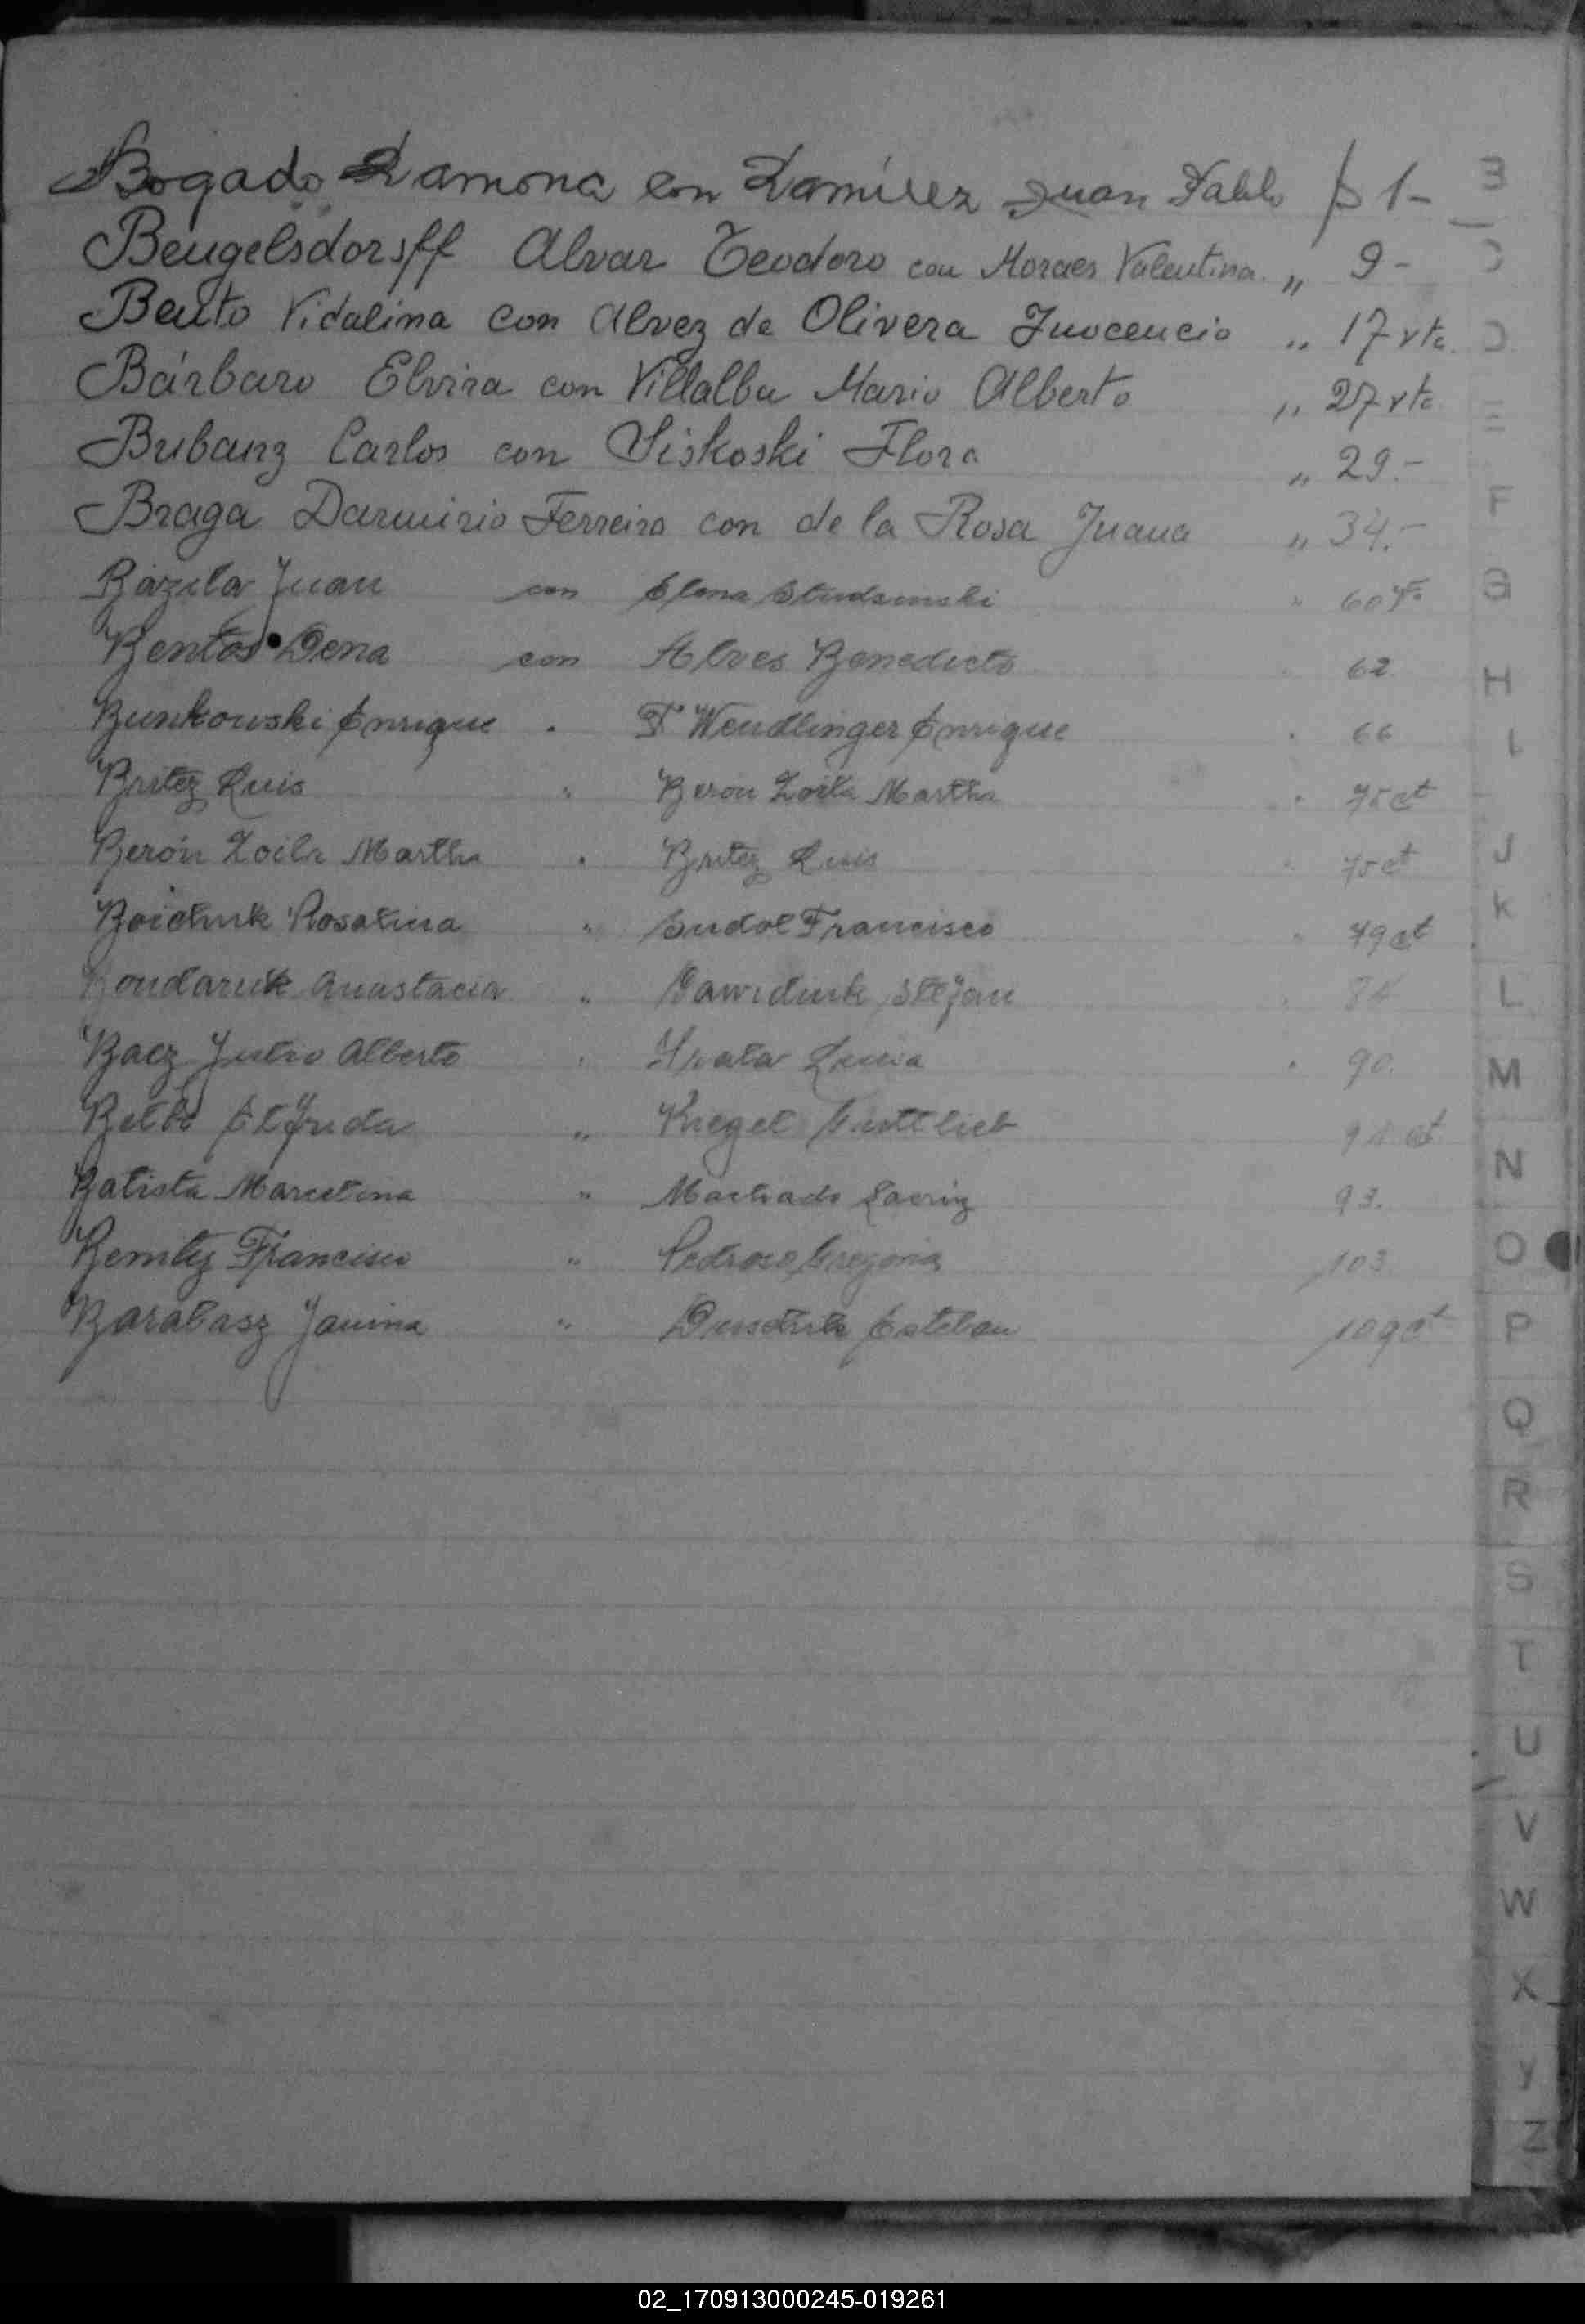 Bogado Ramona con Ramírez Juan Pablo p 1-
Beugelsdorsff Alvar Teodoro con Moraes Valentina „ 9-
Bento Vidalina con Alvez de Olivera Inocencio „ 17 vta.
Bárbaro Elvira con Villalba Mario Alberto „ 27 vta
Bubanz Carlos con Siskoski Flora „ 29.-
Braga Darmirio Ferreira con de la Rosa Juana „ 34.-
Juan con Elena " 60
Bentos Dena con Alves Benedicto 62
Bunkowski Enrique . F Wendlinger Enrique . 66
Britez Luis " Beron Zoila Martha . 75
Berón Zoila Martha . Britez Luis 75
Boichuk Rosalina " Sudol Francisco 79
Bondaruk Anastacia „ Dawidiuk Stefan
Baez Julio Alberto Luisa . 90.
„ Kiegel Gottlieb
Batista Marcelina " Machado 93.
Benitez Francisco " Pedroso Gregoria 103
Barabasz Janina " Esteban 109
B
C
D
E
F
G
H
I
J
K
L
M
N
O
P
Q
R
S
T
U
V
W
X
Y
Z
02_170913000245-019261